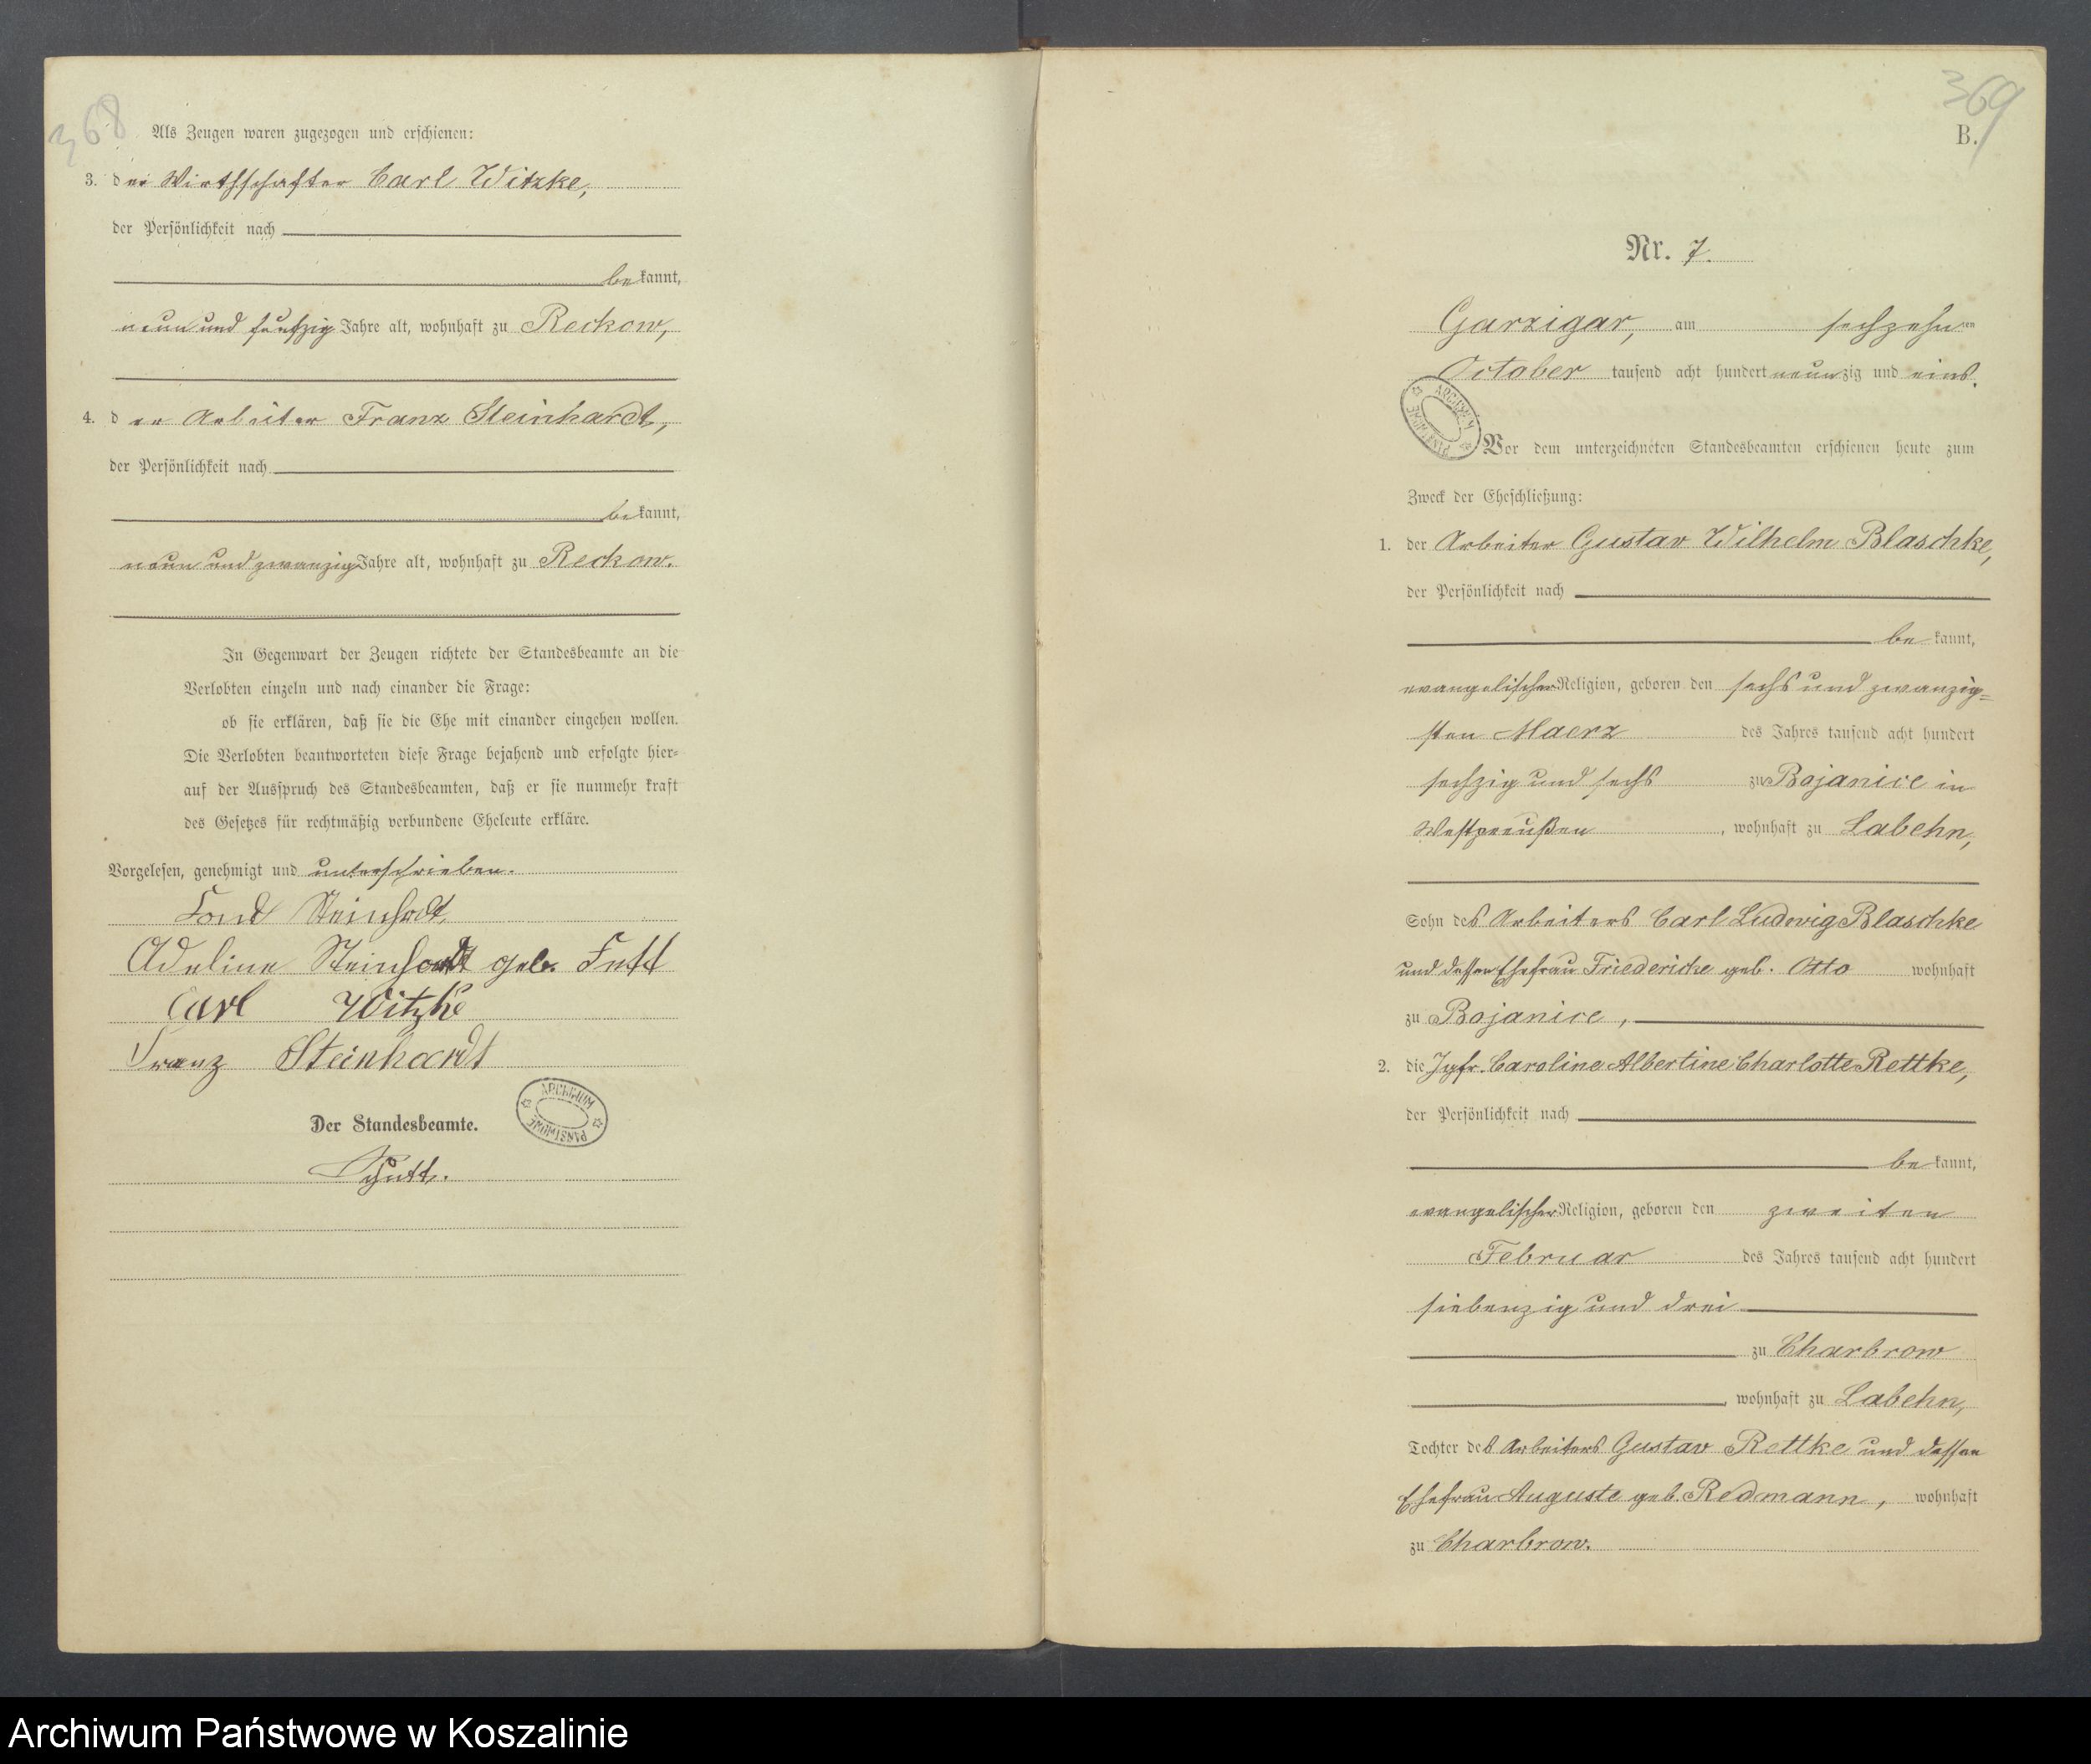 368
Als Zeugen waren zugezogen und erschienen:
3. der Wirthschafter Carl Witzke,
der Persönlichkeit nach
bekannt,
neun und fünfzig Jahre alt, wohnhaft zu Reckow,
4. der Arbeiter Franz Steinhardt,
der Persönlichkeit nach
bekannt,
neun und zwanzig Jahre alt, wohnhaft zu Reckow.
In Gegenwart der Zeugen richtete der Standesbeamte an die
Verlobten einzeln und nach einander die Frage:
ob sie erklären, daß sie die Ehe mit einander eingehen wollen.
Die Verlobten beantworteten diese Frage bejahend und erfolgte hier-
auf der Ausspruch des Standesbeamten, daß er sie nunmehr kraft
des Gesetzes für rechtmäßig verbundene Eheleute erkläre.
Vorgelesen, genehmigt und unterschrieben.
Steinhardt
Adeline Steinhardt geb.
Carl Witzke
Franz Steinhardt
Der Standesbeamte.
ARCHIWUM PAŃSTWOWE
369
B.
Nr. 7.
Garzigar, am sechzehnten
October tausend acht hundert neunzig und eins.
ARCHIWUM PAŃSTWOWE
Vor dem unterzeichneten Standesbeamten erschienen heute zum
Zweck der Eheschließung:
1. der Arbeiter Gustav Wilhelm Blaschke,
der Persönlichkeit nach
bekannt,
evangelischer Religion, geboren den sechs und zwanzig-
sten Maerz des Jahres tausend acht hundert
sechzig und sechs zu Bojanice in
Westpreußen, wohnhaft zu Labehn,
Sohn des Arbeiters Carl Ludwig Blaschke
und dessen Ehefrau Friedericke geb. Otto wohnhaft
zu Bojanice,
2. die Jgfr. Caroline Albertine Charlotte Rettke,
der Persönlichkeit nach
bekannt,
evangelischer Religion, geboren den zweiten
Februar des Jahres tausend acht hundert
siebenzig und drei
zu Charbrow
, wohnhaft zu Labehn,
Tochter des Arbeiters Gustav Rettke und dessen
Ehefrau Auguste geb. Redmann, wohnhaft
zu Charbrow.
Archiwum Państwowe w Koszalinie